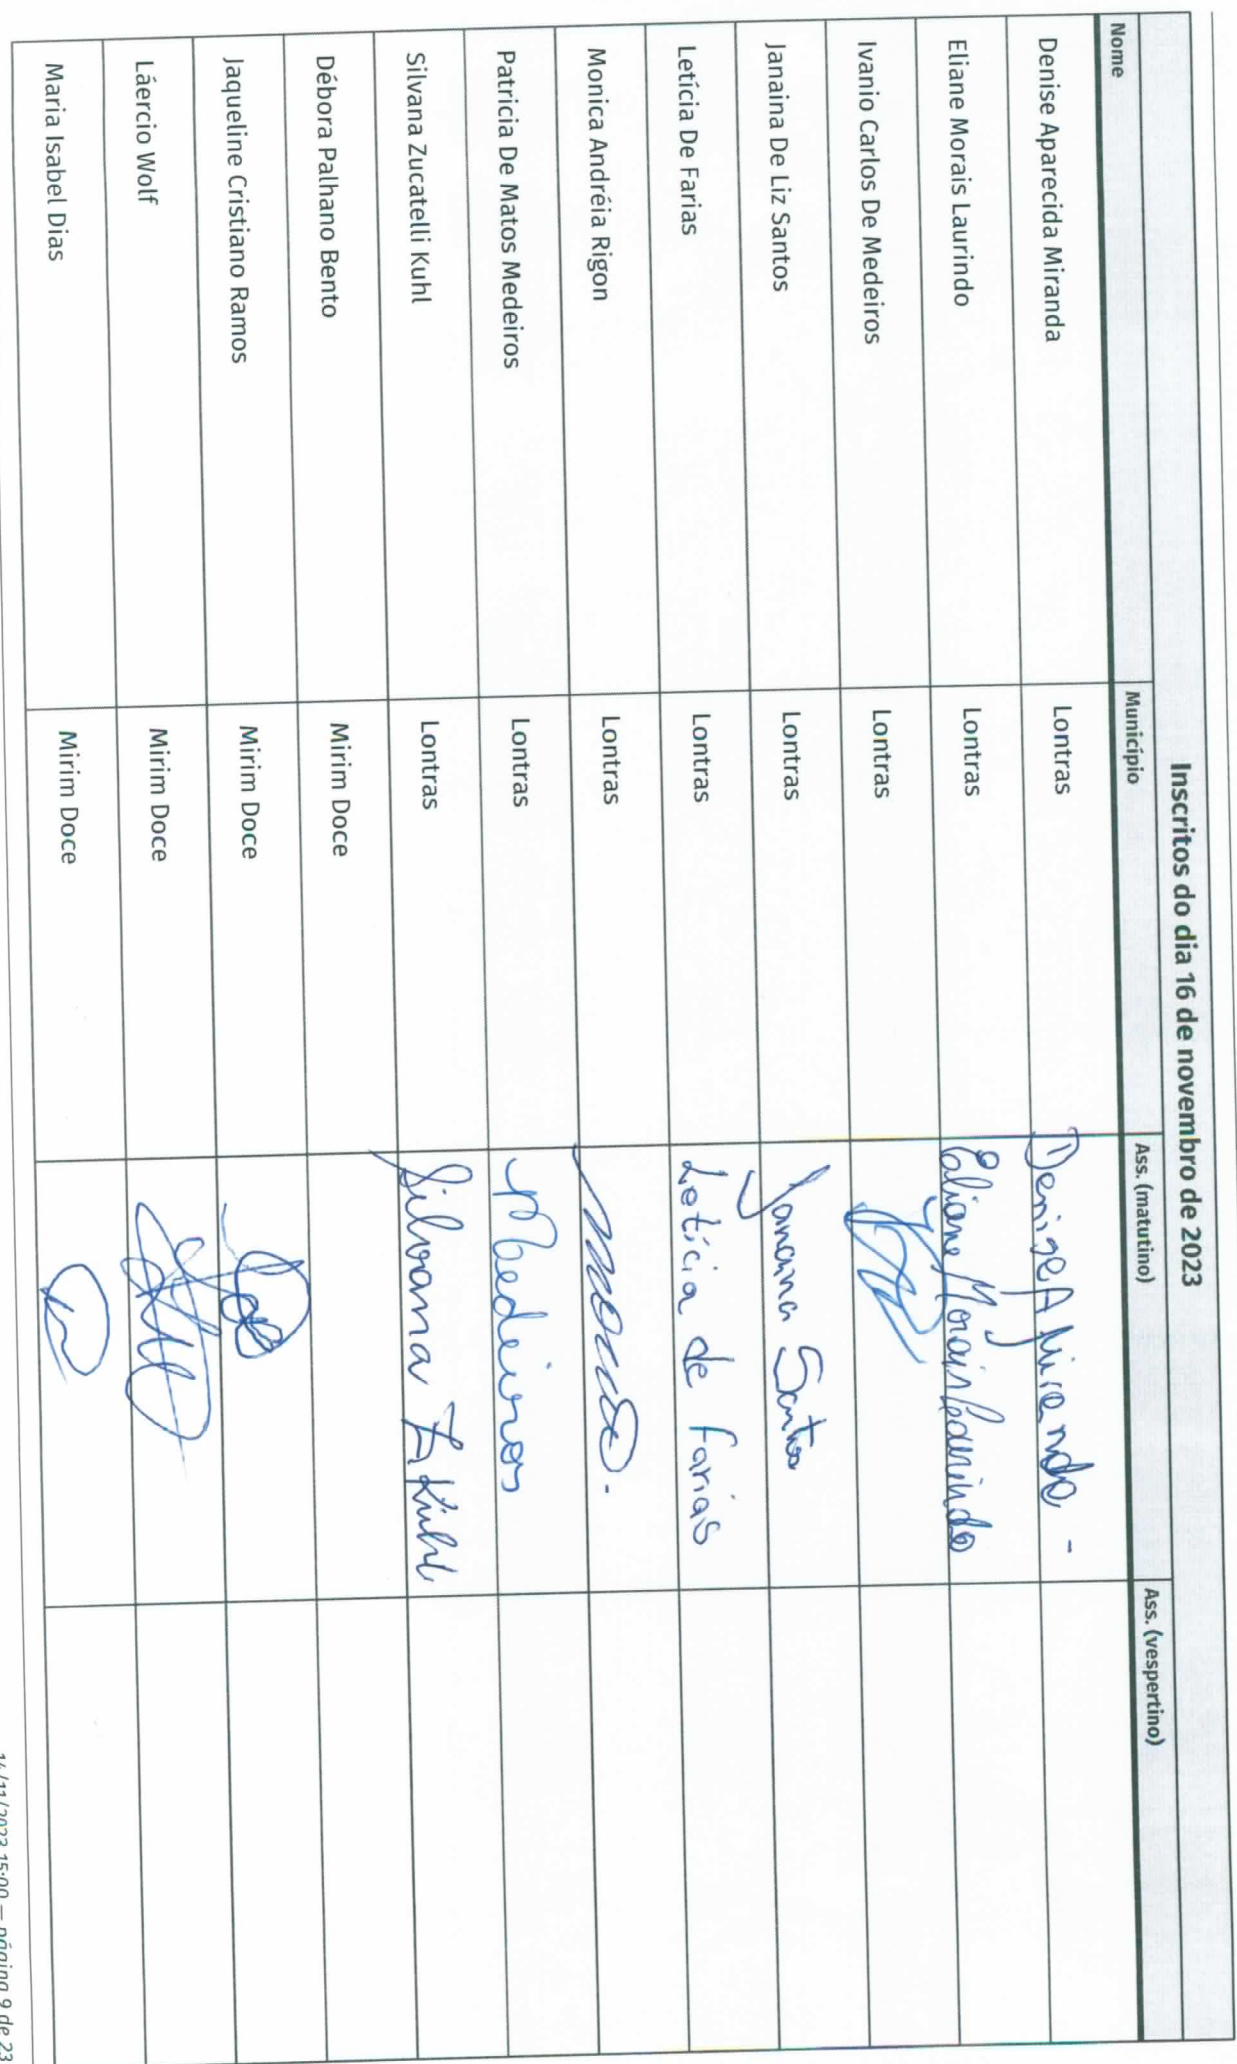 Inscritos do dia 16 de novembro de 2023
Nome Município Ass. (matutino) Ass. (vespertino)
Denise Aparecida Miranda Lontras Denise A Miranda -
Eliane Morais Laurindo Lontras Eliane Morais Laurindo
Ivanio Carlos De Medeiros Lontras
Janaina De Liz Santos Lontras Janaina Santos
Letícia De Farias Lontras Letícia de Farias
Monica Andréia Rigon Lontras
Patricia De Matos Medeiros Lontras PMedeiros
Silvana Zucatelli Kuhl Lontras Silvana Z Kuhl
Débora Palhano Bento Mirim Doce
Jaqueline Cristiano Ramos Mirim Doce
Láercio Wolf Mirim Doce
Maria Isabel Dias Mirim Doce
14/11/2023 15:00 — página 9 de 23